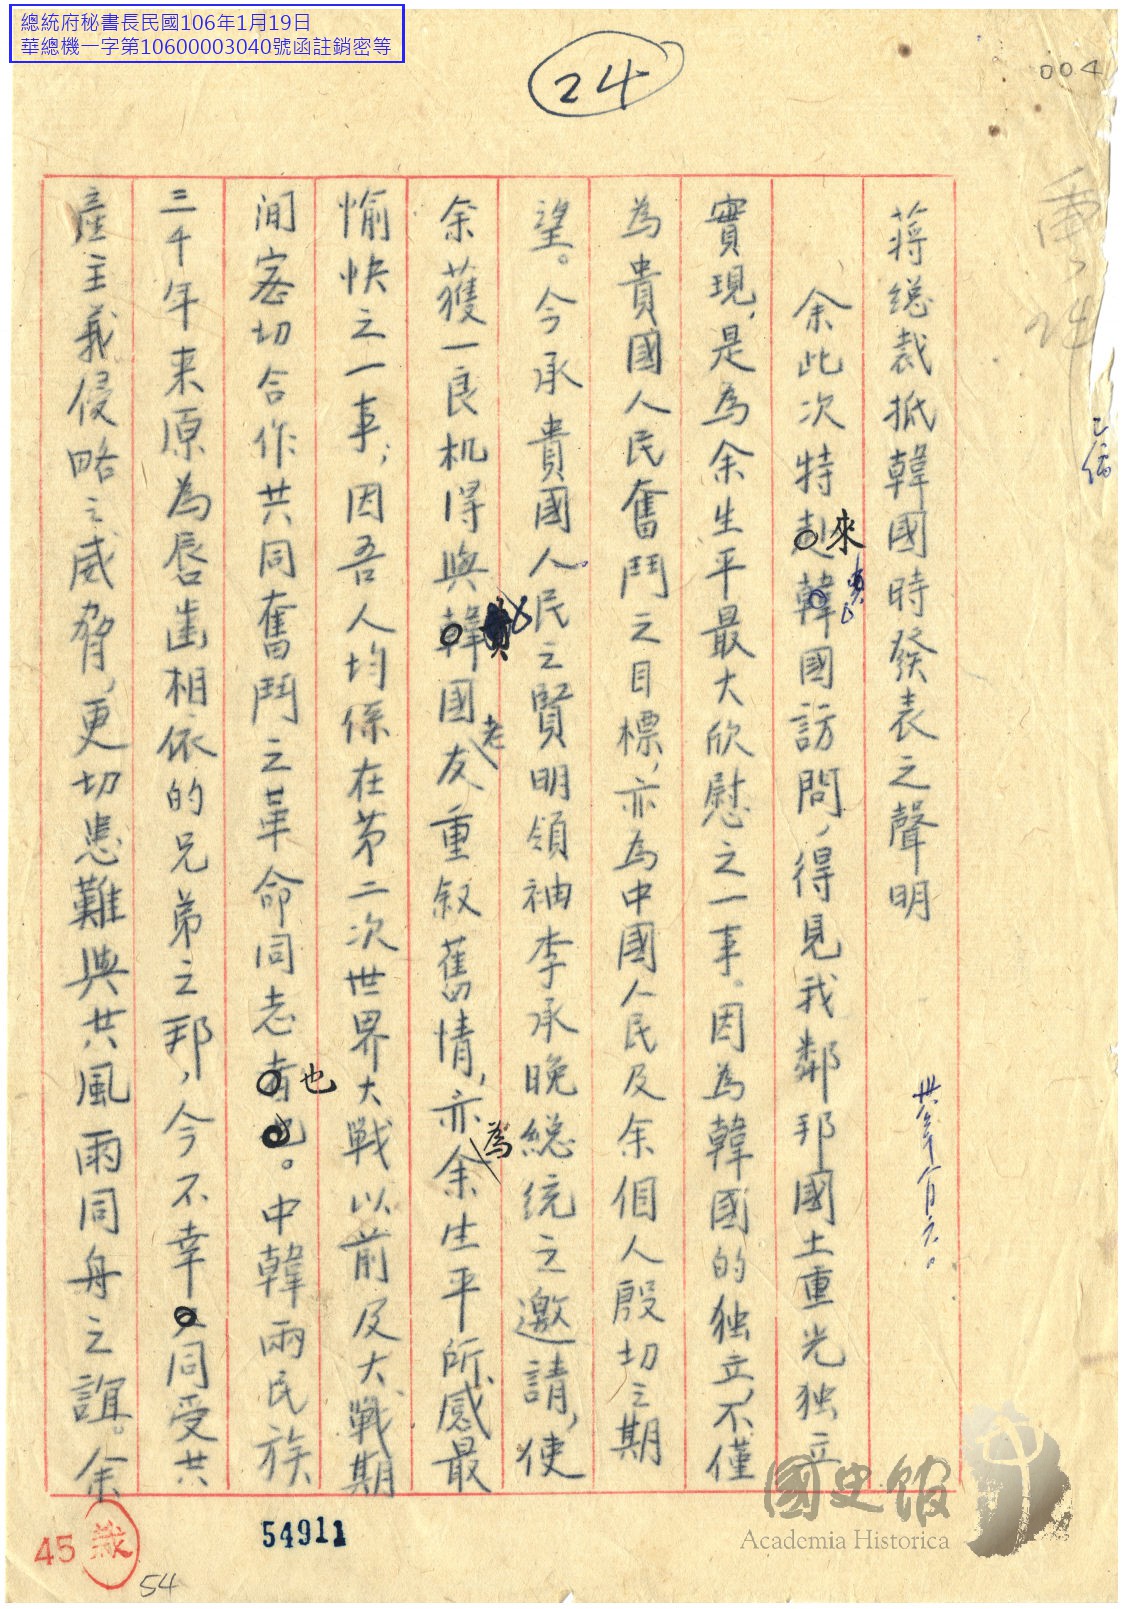 總統府秘書長民國106年1月19日
華總機一字第10600003040號函註銷密等
24
004
蔣總裁抵韓國時發表之聲明
余此次特赴來韓貴國訪問，得見我鄰邦國土重光独立
實現，是為余生平最大欣慰之一事。因為韓國的独立，不僅
為貴國人民奮鬥之目標，亦為中國人民及余個人殷切之期
望。今承貴國人民之賢明領袖李承晚總統之邀請，使
余獲一良机得與韓貴國老友重敘舊情，亦為余生平所感最
愉快之一事；因吾人均係在第二次世界大戰以前及大戰期
間密切合作共同奮鬥之革命同志者也也。中韓兩民族
三千年来原為唇齒相依的兄弟之邦，今不幸又同受共
產主義侵略之威脅，更切患難與共風雨同舟之誼。余
45
54911
54
國史館
Academia Historica